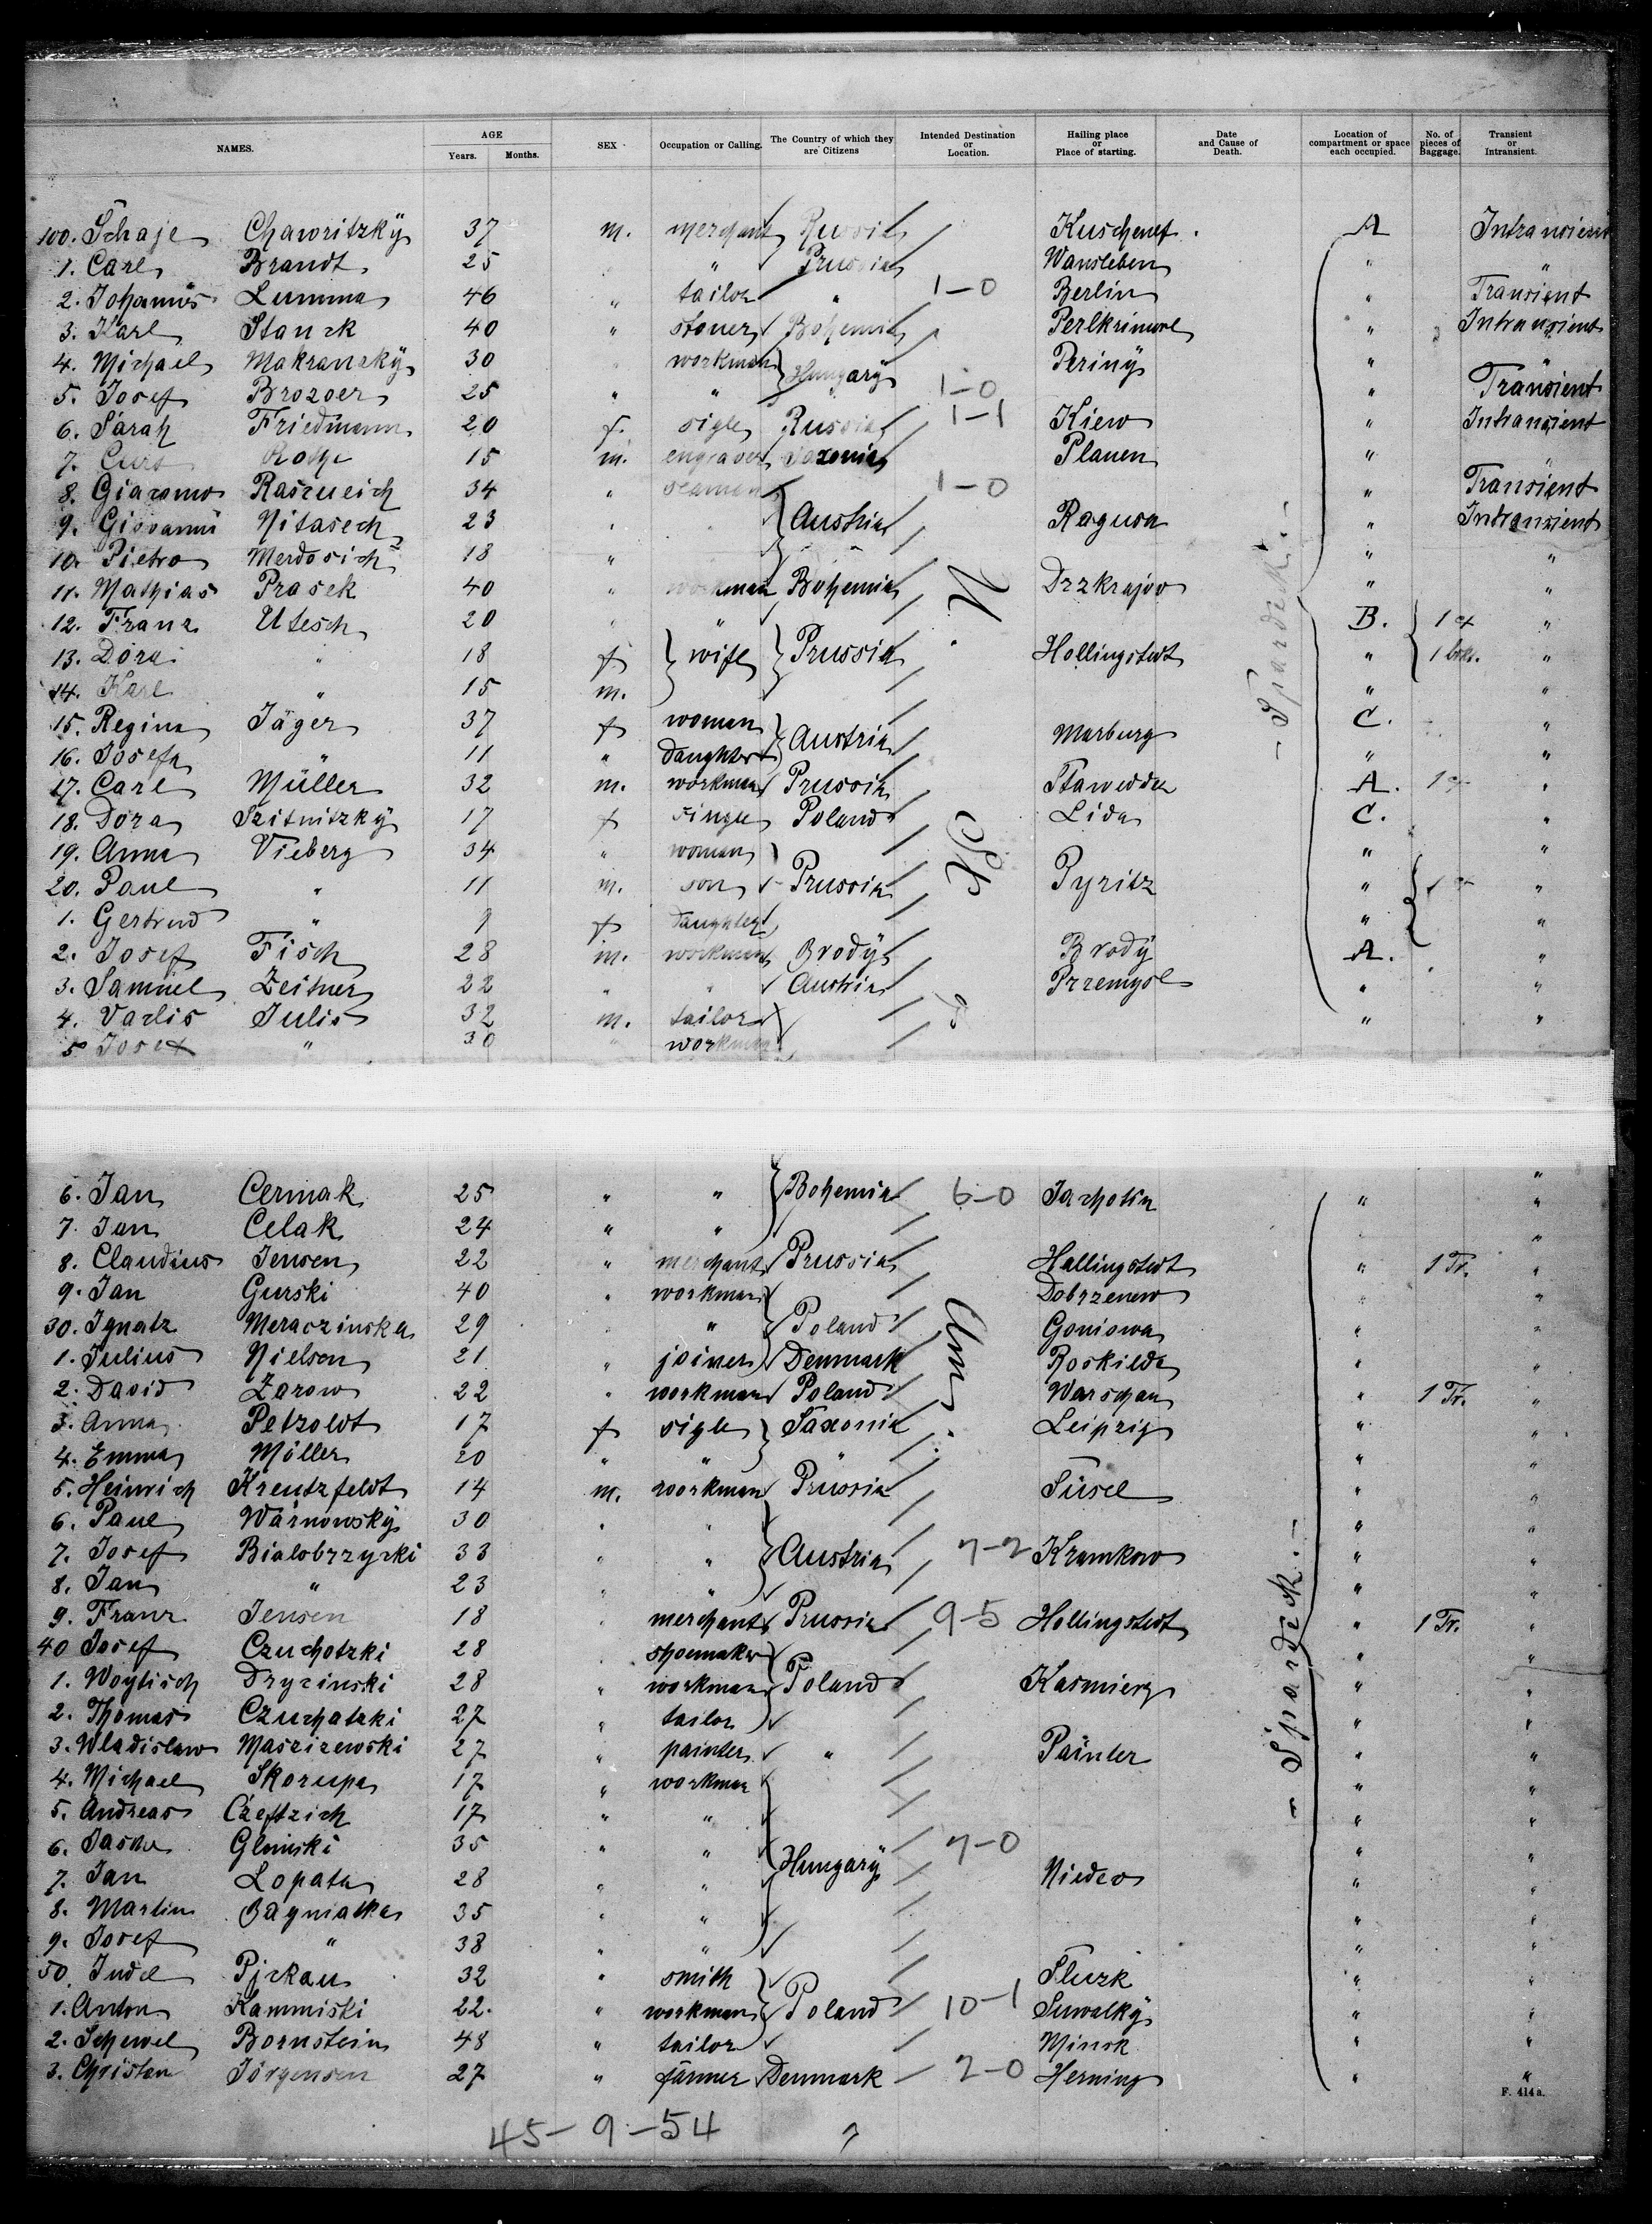 NAMES. AGE Years. Months. SEX Occupation or Calling. The Country of which they are Citizens Intended Destination or Location. Hailing place or Place of starting. Date and Cause of Death. Location of compartment or space each occupied. No. of pieces of Baggage. Transient or Intransient.
100. Schaje Chawritzky 37 m. merchant Russia A Intransient
1. Carl Brandt 25 " Prussia Wansleben " "
2. Johannes Lumma 46 " tailor " 1-0 Berlin " Transient
3. Karl Stanek 40 " Bohemia " Intransient
4. Michael Makranzky 30 " workman Hungary Periny " "
5. Josef Brozoer 25 " " 1-0 " Transient
6. Sarah Friedmann 20 f. sigle Russia 1-1 Kiew " Intransient
7. Curt Rothe 15 m. engraver Saxonia Plauen " "
8. Giacomo 34 " seaman 1-0 " Transient
9. Giovanni Nitasech 23 " " Austria Ragusa " Intransient
10. Pietro Merdosich 18 " " " "
11. Mathias Prasek 40 " workman Bohemia Drzkrajov " "
12. Franz Utesch 20 " " B. "
13. Dora " 18 f wife Prussia Hollingstedt " "
14. Karl " 15 m. " "
15. Regina Jäger 37 f woman Austria Marburg C. "
16. Josefa " 11 " daughter " "
17. Carl Müller 32 m. workman Prussia Stawedder A. "
18. Dora Szitnitzky 17 f single Poland Lida C. "
19. Anna Vieberg 34 " woman " "
20. Paul " 11 m. son Prussia Pyritz " "
1. Gertrud " 9 f daughter " "
2. Josef Fisch 28 m. workman Brody Brody A. "
3. Samuel Zeitner 22 " " Austria Przemysl " "
4. Varlis Julis 32 m. tailor " "
5 Josef " 30 " workman
6. Jan Cermak 25 " " Bohemia 6-0 " "
7. Jan Celak 24 " " "
8. Claudius Jensen 22 " merchant Prussia Hollingstedt " 1 Tr. "
9. Jan Gurski 40 " workman Dobrzenew " "
30. Ignatz Meraczinska 29 " " Poland Goniowa " "
1. Julius Nielsen 21 " joiner Denmark Roskilde " "
2. David Zarow 22 " workman Poland Warschau " 1 Tr. "
3. Anna Petzoldt 17 f sigle Saxonia Leipzig " "
4. Emma Möller 20 " " " " "
5. Heinrich Kreutzfeldt 14 m. workman Prussia Süsel " "
6. Paul Warnowsky 30 " " " "
7. Josef Bialobrzyrki 33 " " Austria Kramkow " "
8. Jan " 23 " " " "
9. Franz Jensen 18 " merchant Prussia 9-5 Hollingstedt " 1 Tr. "
40 Josef Czuchotzki 28 " shoemaker " "
1. Woytisch Dryzinski 28 " workman Poland Kasmierz " "
2. Thomas Czuchatzki 27 " tailor " "
3. Wladislaw Maszizewski 27 " painter " Painter " "
4. Michael Skorupa 17 " workman " "
5. Andreas Czeftzich 17 " " " "
6. Glinski 35 " " " "
7. Jan Lopata 28 " " Hungary " "
8. Martin Bagniatka 35 " " " "
9. Josef " 38 " " " "
50. Judel Pjrkau 32 " smith Sluzk " "
1. Anton Kammiski 22. " workman Poland 10-1 Suwalky " "
2. Schewel Bornstein 48 " tailor Minsk " "
3. Christen Jörgensen 27 " farmer Denmark 2-0 Herning " "
F. 414a.
45-9-54